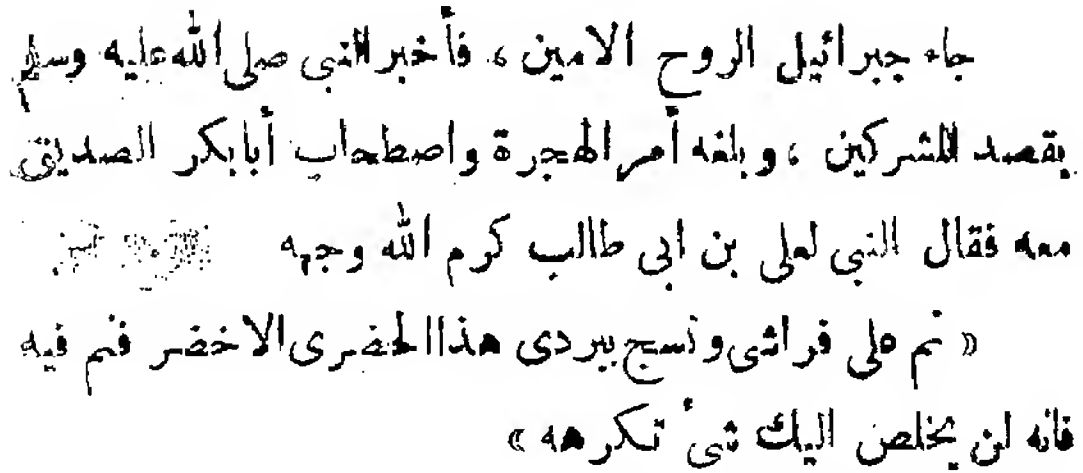 جاء جبرائيل الروح الامين ، فأخبر النبى صلى الله عليه وسلم
بقصد المشركين ، وبلغه أمر الهجرة واصطحاب أبابكر الصديق
معه فقال النبى لعلى بن ابى طالب كرم الله وجهه
« نم على فراشى وتسج ببردى هذا الحضرى الاخضر فنم فيه
فانه لن يخلص اليك شئ تكرهه »